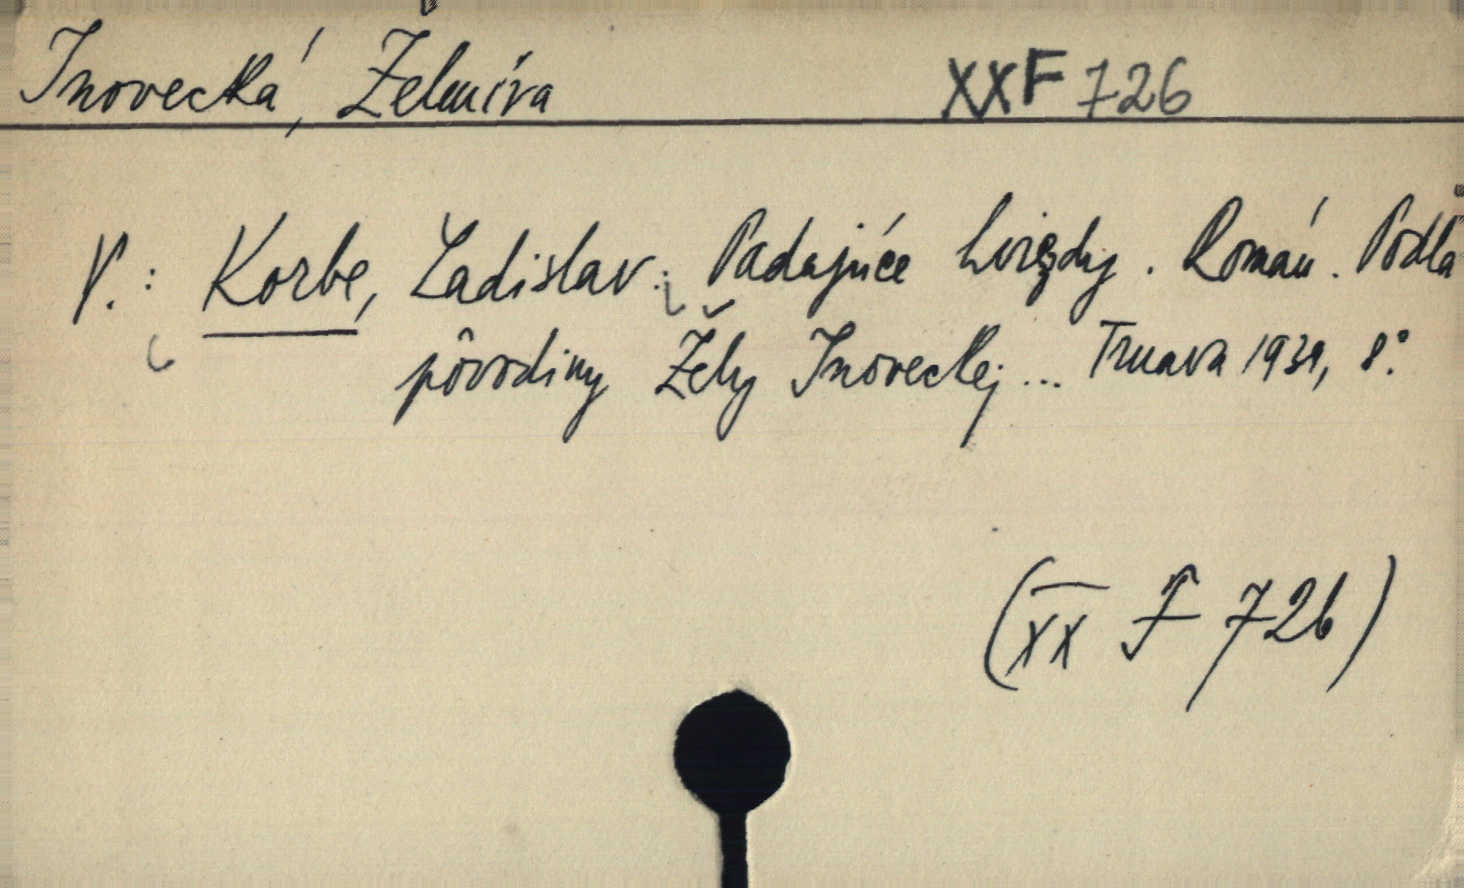 Inovecká, Želmíra XXF 726
V.: Korbe, Ladislav: Padajúce hviezdy. Román. Podľa
pôvodiny Žely Inoveckej... Trnava 1939, 8°.
(XX F 726)